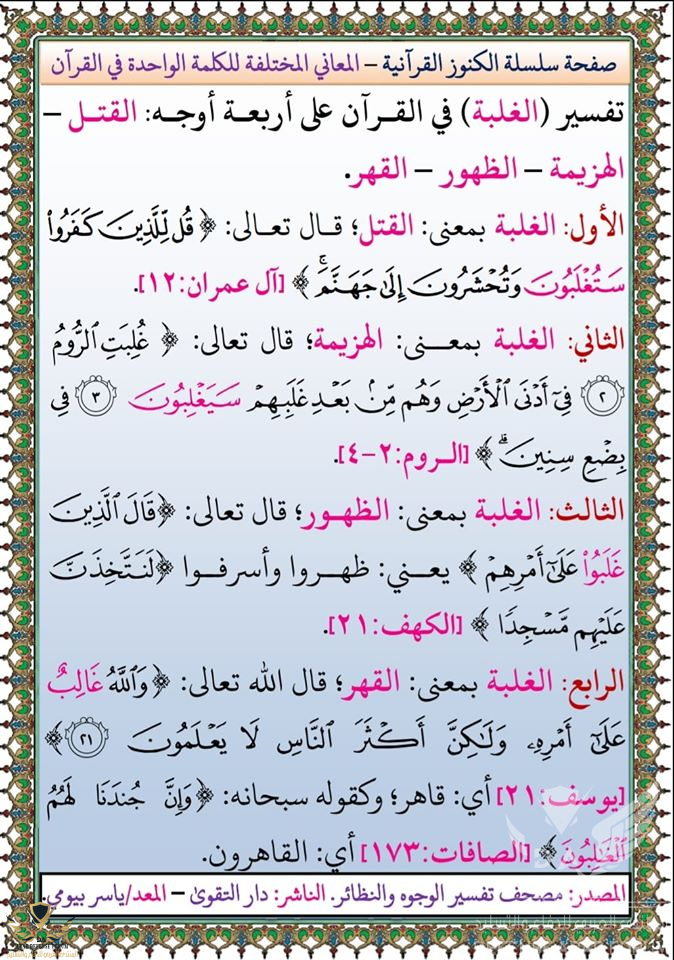 صفحة سلسلة الكنوز القرآنية – المعاني المختلفة للكلمة الواحدة في القرآن
تفسير (الغلبة) في القـرآن على أربعـة أوجـه: القتـل –
الهزيمة – الظهور – القهر.
الأول: الغلبة بمعنى: القتل؛ قـال تعـالى: ﴿ قُل لِّلَّذِينَ كَفَرُواْ
سَتُغْلَبُونَ وَتُحْشَرُونَ إِلَىٰ جَهَنَّمَۚ ﴾ [آل عمران:١٢].
الثاني: الغلبة بمعنـــى: الهزيمة؛ قال تعالى: ﴿ غُلِبَتِ ٱلرُّومُ
٢ فِيٓ أَدْنَى ٱلْأَرْضِ وَهُم مِّنۢ بَعْدِ غَلَبِهِمْ سَيَغْلِبُونَ ٣ فِي
بِضْعِ سِنِينَۗ ﴾ [الـروم:٢-٤].
الثالث: الغلبة بمعنى: الظهـور؛ قال تعالى: ﴿قَالَ ٱلَّذِينَ
غَلَبُواْ عَلَىٰٓ أَمْرِهِمْ ﴾ يعـني: ظهـروا وأسرفـوا ﴿لَنَتَّخِذَنَّ
عَلَيْهِم مَّسْجِدًا ﴾ [الكهف:٢١].
الرابع: الغلبة بمعنى: القهر؛ قال الله تعالى: ﴿وَٱللَّهُ غَالِبٌ
عَلَىٰٓ أَمْرِهِۦ وَلَٰكِنَّ أَكْثَرَ ٱلنَّاسِ لَا يَعْلَمُونَ ٢١﴾
[يوسف:٢١] أي: قاهر؛ وكقوله سبحانه: ﴿وَإِنَّ جُندَنَا لَهُمُ
ٱلْغَٰلِبُونَ﴾ [الصافات:١٧٣] أي: القاهرون.
المصدر: مصحف تفسير الوجوه والنظائر. الناشر: دار التقوىٰ – المعد/ياسر بيومي.